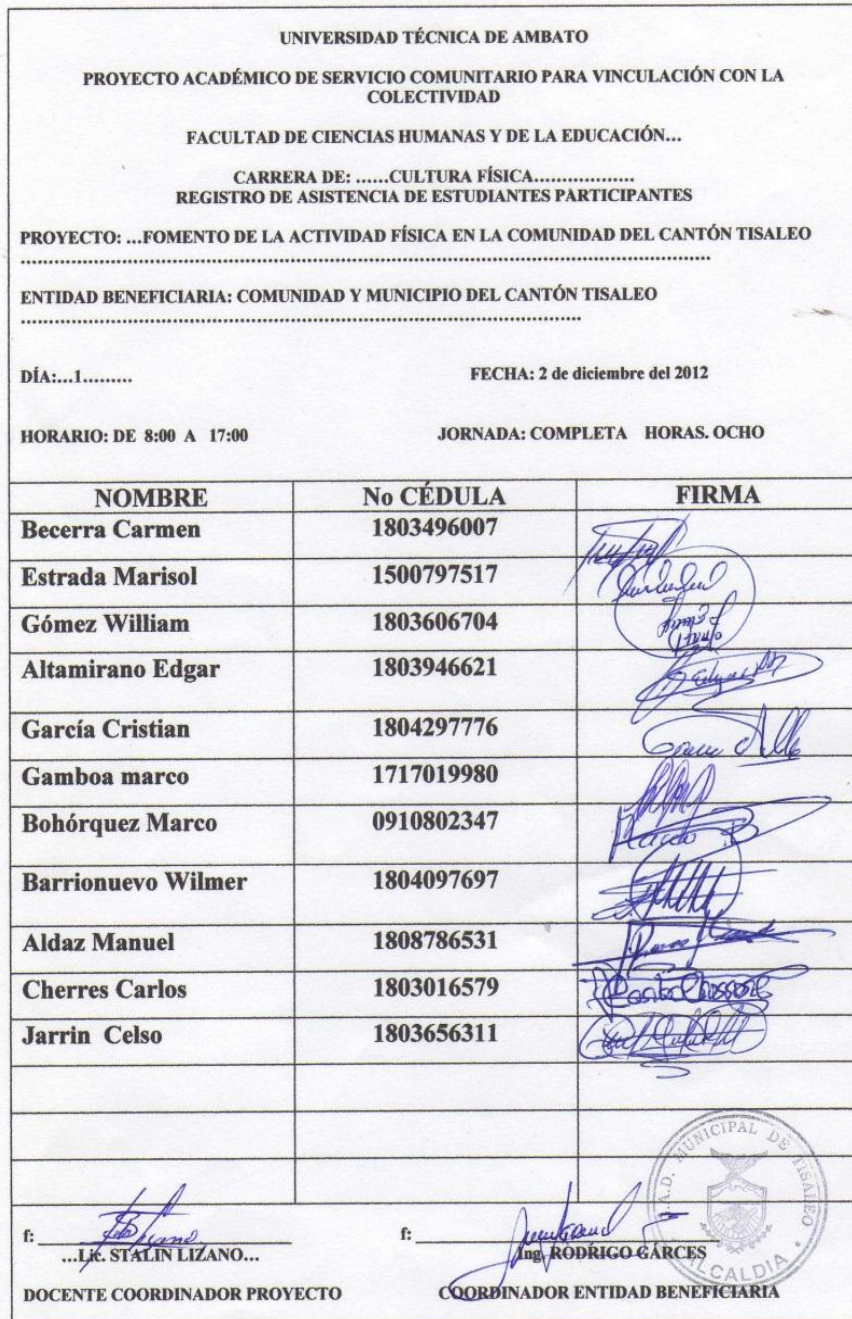 UNIVERSIDAD TÉCNICA DE AMBATO
PROYECTO ACADÉMICO DE SERVICIO COMUNITARIO PARA VINCULACIÓN CON LA
COLECTIVIDAD
FACULTAD DE CIENCIAS HUMANAS Y DE LA EDUCACIÓN...
CARRERA DE: ......CULTURA FÍSICA..................
REGISTRO DE ASISTENCIA DE ESTUDIANTES PARTICIPANTES
PROYECTO: ...FOMENTO DE LA ACTIVIDAD FÍSICA EN LA COMUNIDAD DEL CANTÓN TISALEO
ENTIDAD BENEFICIARIA: COMUNIDAD Y MUNICIPIO DEL CANTÓN TISALEO
DÍA:...1......... FECHA: 2 de diciembre del 2012
HORARIO: DE 8:00 A 17:00 JORNADA: COMPLETA HORAS. OCHO
NOMBRE No CÉDULA FIRMA
Becerra Carmen 1803496007
Estrada Marisol 1500797517
Gómez William 1803606704
Altamirano Edgar 1803946621
García Cristian 1804297776
Gamboa marco 1717019980
Bohórquez Marco 0910802347 Marco B
Barrionuevo Wilmer 1804097697
Aldaz Manuel 1808786531
Cherres Carlos 1803016579
Jarrin Celso 1803656311
G.A.D. MUNICIPAL DE TISALEO
ALCALDIA
f: f:
...Lic. STALIN LIZANO... Ing. RODRIGO GÁRCES
DOCENTE COORDINADOR PROYECTO COORDINADOR ENTIDAD BENEFICIARIA